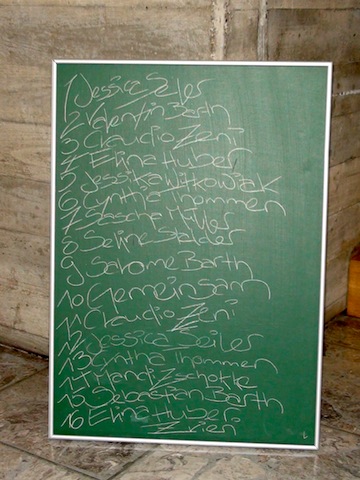 1 Jessica Seiler
2 Valentin Barth
3 Claudio Zeni
4 Elina Huber
5 Jessika Witkowiak
6 Cynthia Thommen
7 Sascha Müller
8 Seline Stalder
9 Salome Barth
10 Gemeinsam
11 Claudio Zeni
12 Jessica Seiler
13 Cyntha Thommen
14 Mandi Zschokke
15 Sebastian Barth
16 Elina Huber